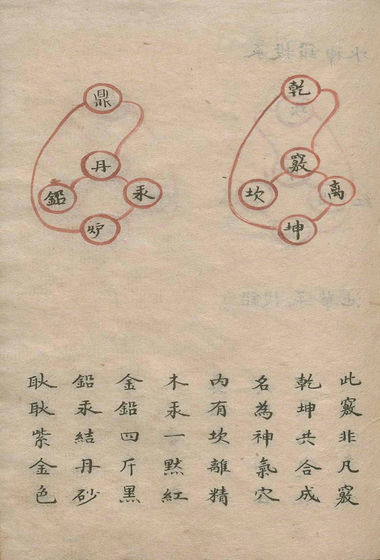 乾
竅
离
坎
坤
鼎
丹
汞
鉛
炉
此竅非凡竅
乾坤共合成
名為神氣穴
内有坎離精
木汞一點紅
金鉛四斤黑
鉛汞結丹砂
耿耿紫金色